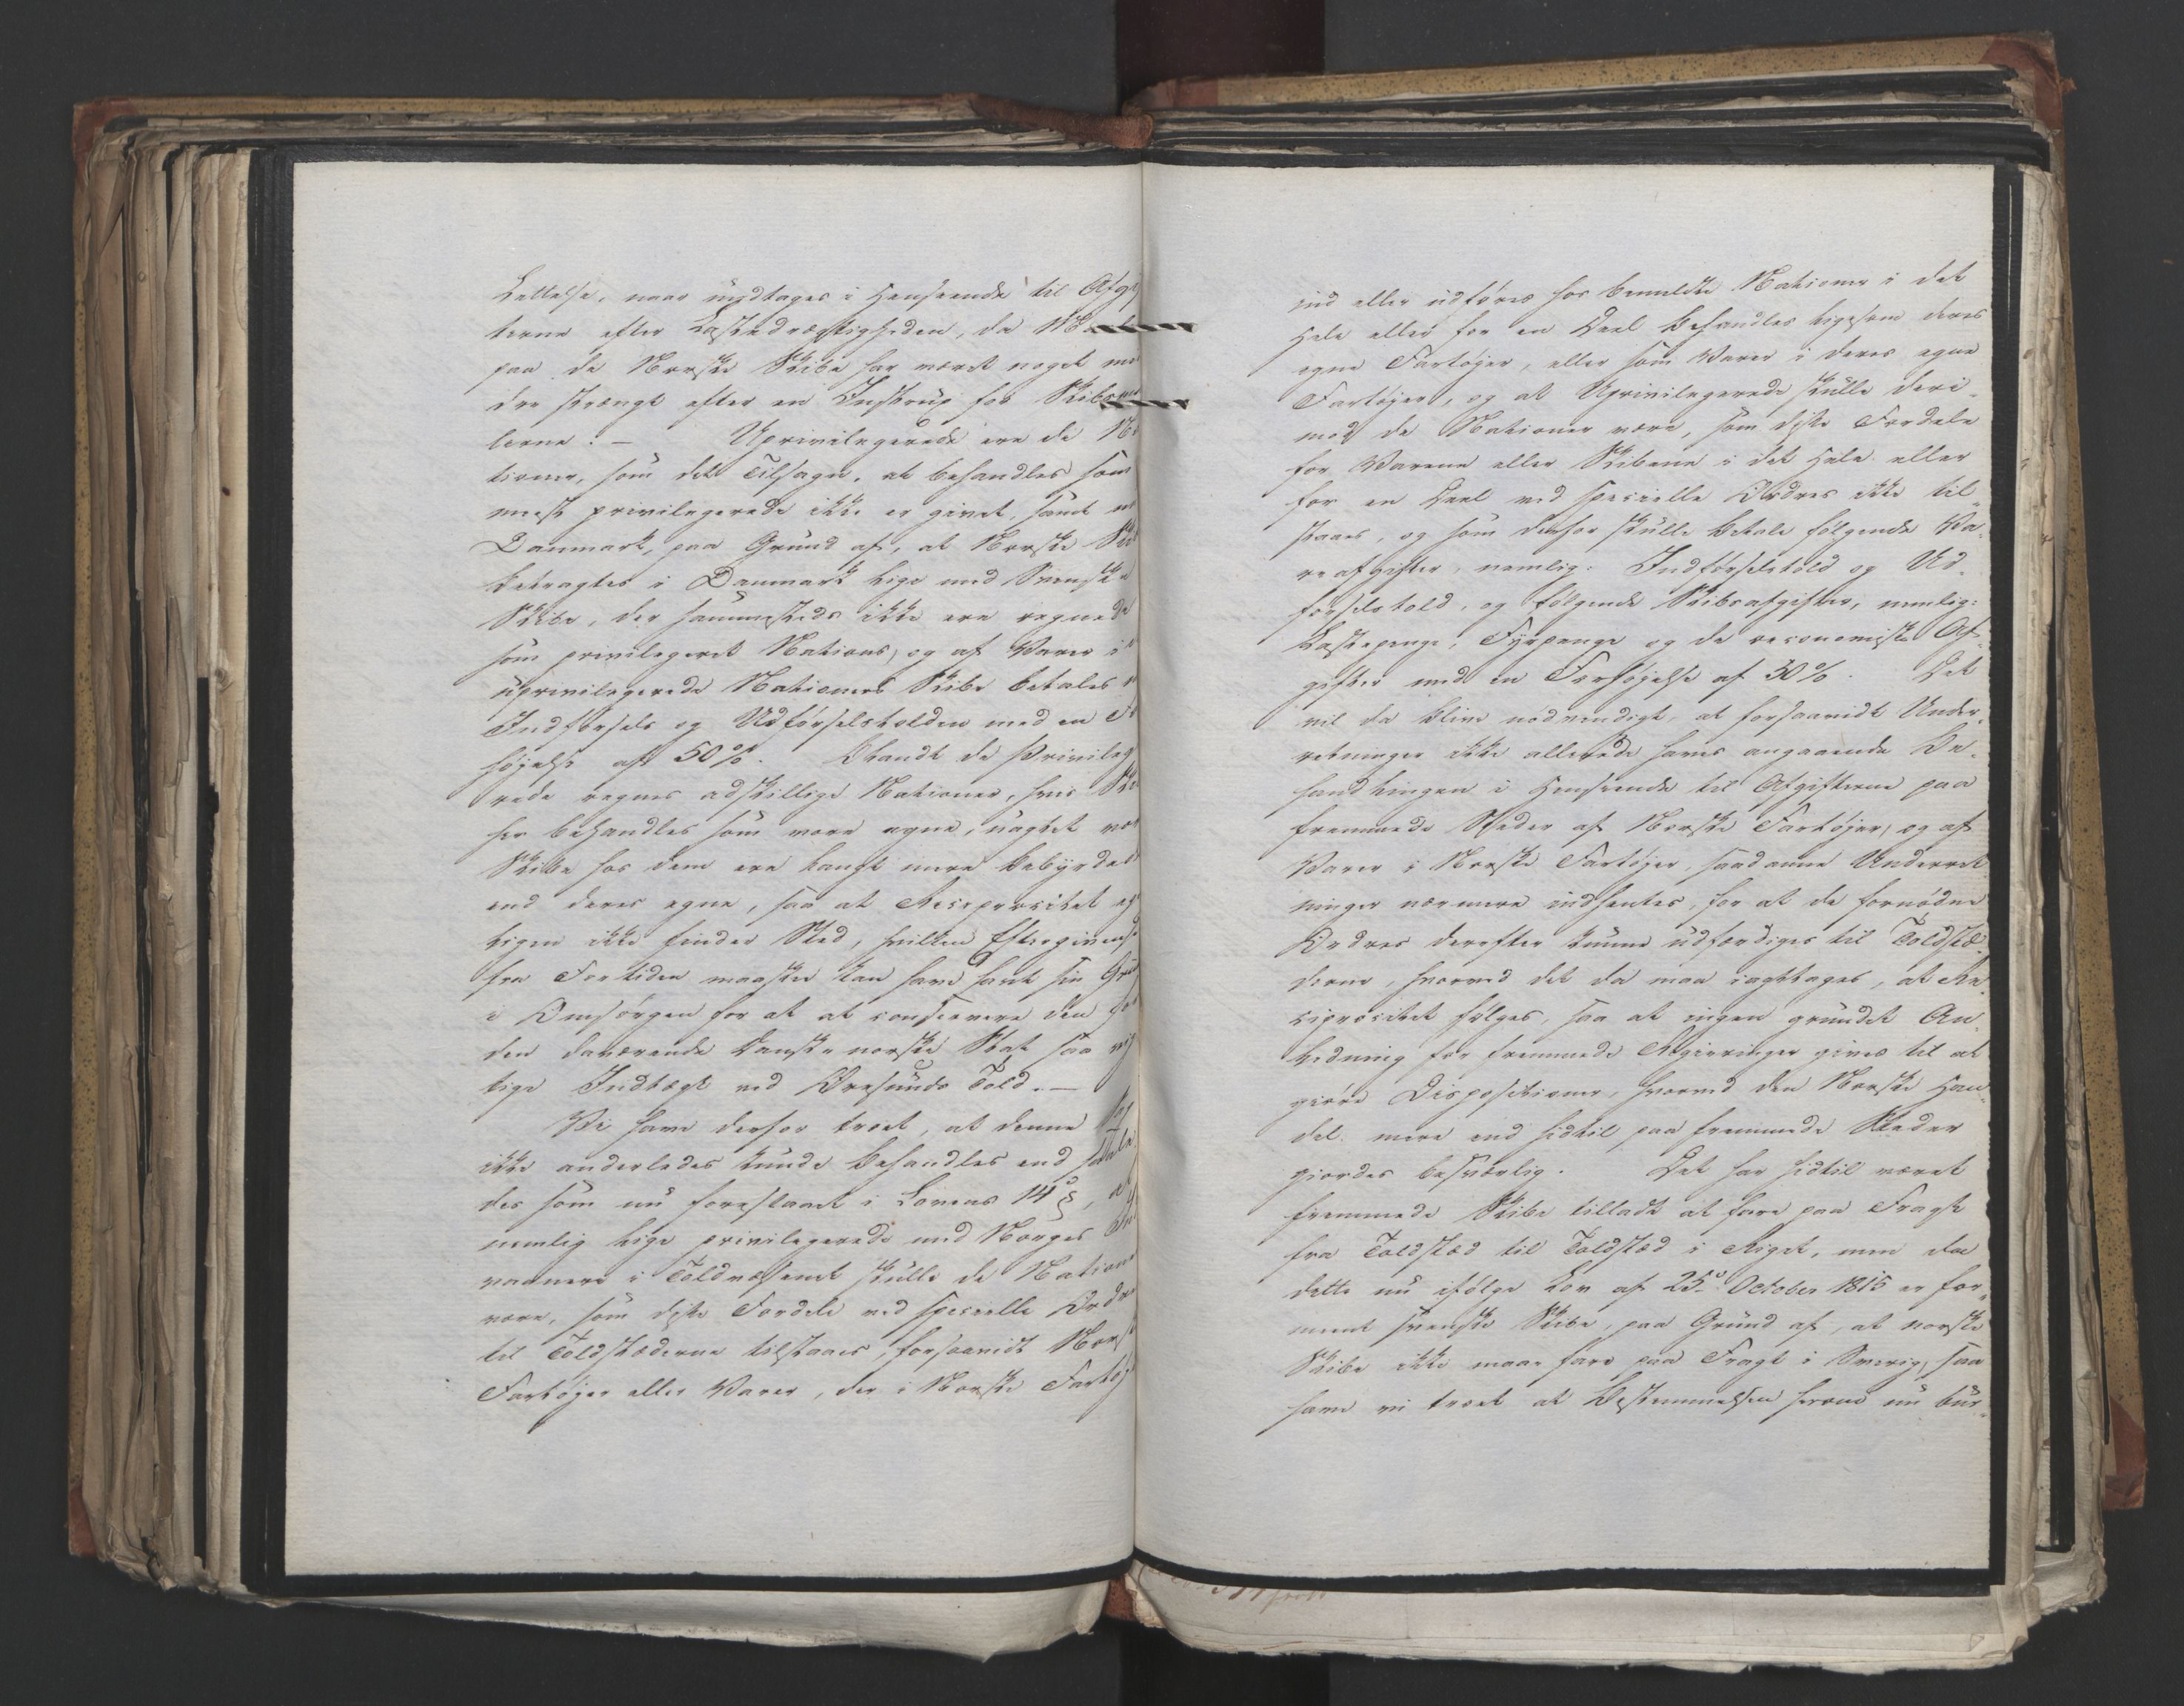 Lettelse, naar undtages i Henseende til Afgif
terne efter Læstedrægtigheden, da
paa de Norske Skibe har været noget min
dre strængt efter en Instrux for Skibs
lerne. — Uprivilegerede ere de Na
tioner, som det Tilsagn, at behandles som
meest privilegerede ikke er givet, samt
Danmark, paa Grund af, at Norske Skibe
betragtes i Danmark lige med Svenske
Skibe, der sammesteds ikke ere regnede
som privilegeret Nations, og af Varer i
uprivilegerede Nationers Skibe betales
Indførsels og Udførselstolden med en For
høyelse af 50%. Blandt de Privileg
rede regnes adskillige Nationer, hvis Ski
her behandles som vore egne, uagtet vor
Skibe hos dem ere langt mere bebyrdede
end deres egne, saa at Reciprocitet eg
ligen ikke finder Sted, hvilken Eftergivenh
fra Fortiden maaskee kan have havt sin Gru
i Omsorgen for at at conservere den for
den daværende Dansk norske Stat saa vig
tige Indtægt ved Øresunds Told. —
Vi have derfor troet, at denne
ikke anderledes kunde behandles end saale
des som nu forestaaet i Lovens 14 §, at
nemlig lige privilegerede med Norges Ind
vaanere i Toldvæsenet skulle de Nation
være, som disse Fordele ved specielle Ordre
til Toldstæderne tilstaaes, forsaavidt Norsk
Fartøjer eller Varer, der i Norske Fartøj
ind eller udføres hos bemeldte Nationer i det
Hele eller for en Deel behandles ligesom deres
egne Fartøjer, eller som Varer i deres egne
Fartøjer, og at Uprivilegerede skulle deri-
mod de Nationer være, som disse Fordele
for Varene eller Skibene i det Hele eller
for en Deel ved specielle Ordres ikke til-
staaes, og som derfor skulle betale følgende Va-
reafgifter, nemlig: Indførselstold og Ud-
førselstold, og følgende Skibsafgifter, nemlig:
Læstepenge, Fyrpenge og de reconomiske Af-
gifter med en Forhøjelse af 30%. Det
vil da blive nødvendigt, at forsaavidt Under-
retninger ikke allerede haves angaaende Be-
handlingen i Henseende til Afgifterne paa
fremmede Steder af Norske Fartøjer, og af
Varer i Norske Fartøjer, saadanne Underret
ninger nærmere indhentes, for at de fornødne
Ordres derefter kunne udfærdiges til Toldstæ-
derne, hvorved det da maa iagttages, at Re-
ciprocitet følges, saa at ingen grundet An-
ledning for fremmede Regieringer gives til at
giøre Dispositioner, hvorved den Norske Han-
del mere end hidtil paa fremmede Steder
giordes besværlig. Det har hidtil været
fremmede Skibe tilladt at fare paa Fragt
fra Toldsted til Toldsted i Riget, men da
dette nu ifølge Lov af 25de October 1815 er for-
meent svenske Skibe, paa Grund af, at norske
Skibe ikke maae fare paa Fragt i Sverig, saa
have vi troet at Bestemmelsen herom nu bur-